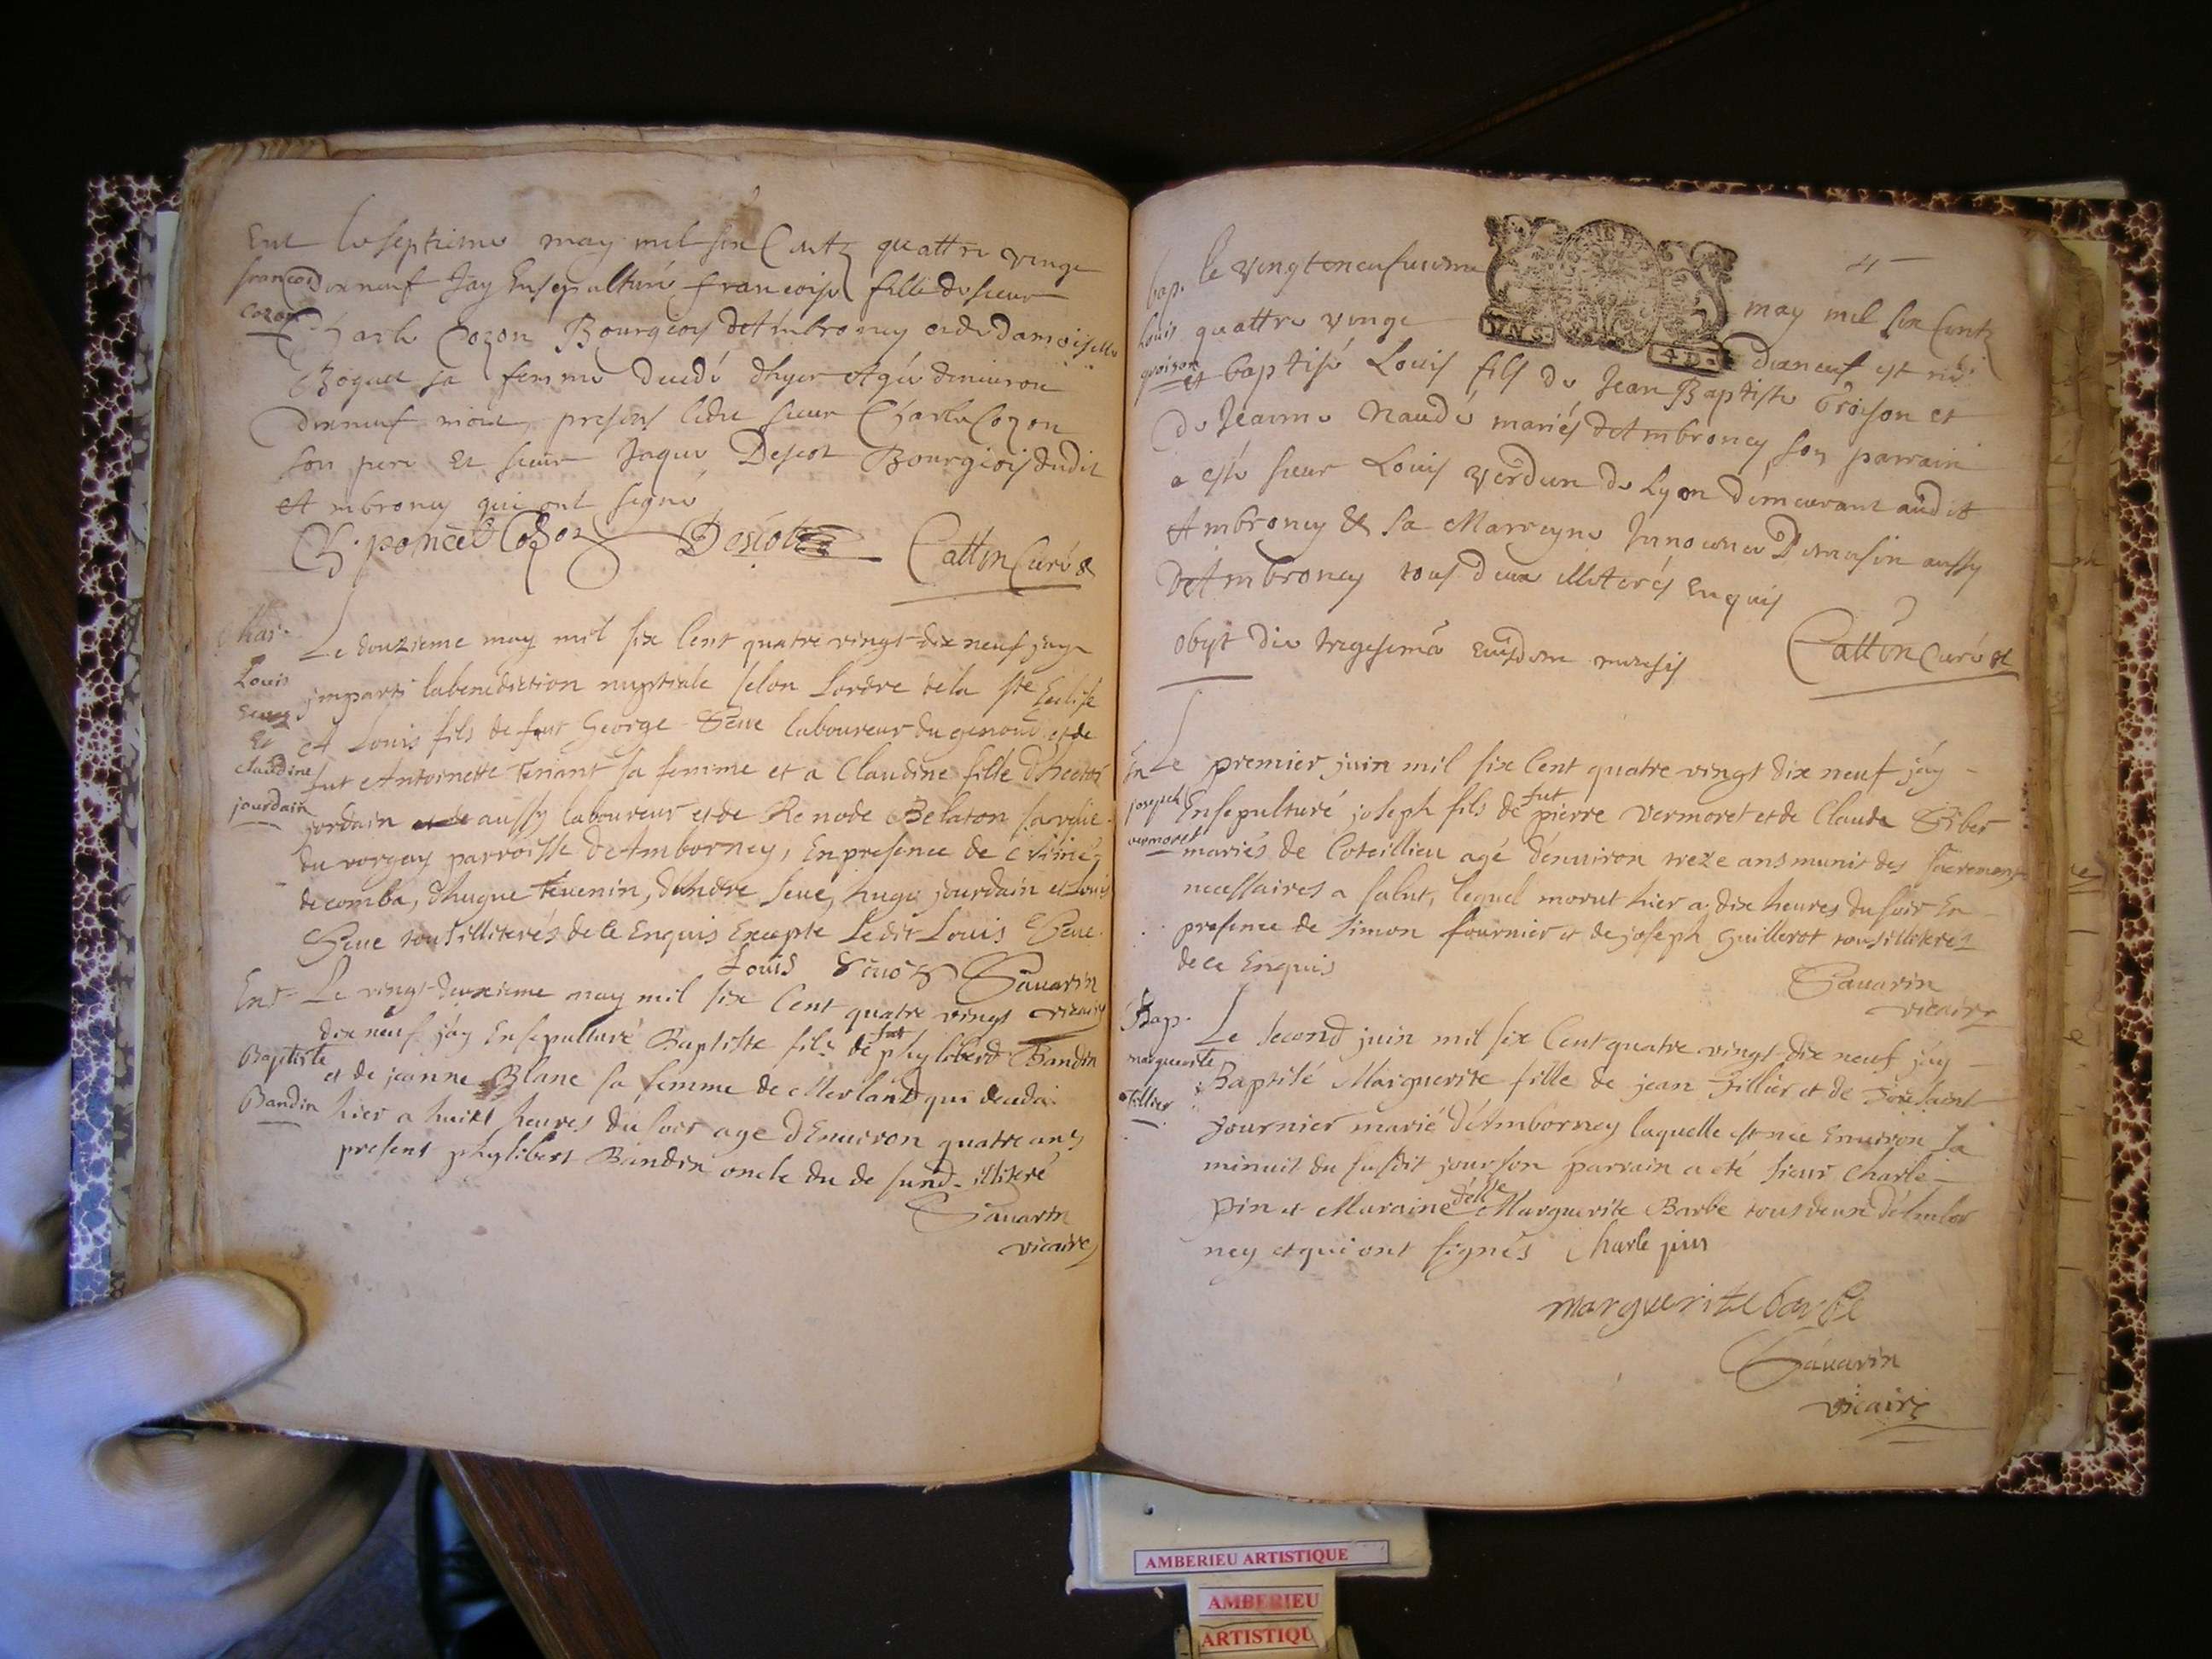 Ent le septieme may mil six Centz quattre vingt
francois dixneuf Jay Ensepulturé francoise fille du sieur
Cozon Charle Cozon Bourgeois dAmbroney et de Damoiselle
sa femme decedé dhyer Agée denuiron
dixneuf mois, presens ledit sieur Charle Cozon
son pere et sieur Jaque Descot Bourgiois dudit
Ambroney qui ont signé
Cozon Descot Cattin Curé
Mar.
Le douzieme may mil six Cent quatre vingt-dix neuf jay
Louis imparti la benediction nuptiale selon Lordre de la ste Eglise
A Louis fils de fut George Seue laboureur du genoud et de
Et
Claudine fut Antoinette Tenant sa femme et a Claudine fille
jourdain jordain aussy laboureur et de Renode Belaton
du vorgay parroisse dAmborney, En presence de
decomba, dhugue tevenin, dAndre Seue, hugue jourdain et Louis
Seue tous illiterés de ce Enquis Excepte Ledit Louis Seue.
Louis Sauarin
vicaire
Ent- Le vingt-deuxieme may mil six Cent quatre vingt
dix neuf jay Ensepulturé Baptiste fils de fut phylibert Bandin
Baptiste et de jeanne Blanc sa femme de Merland qui deceda
Bandin hier a huit heures du soir age dEnuiron quatre ans
present phylibert Bandin oncle du defund illiteré
Sauarin
vicaire
4
bap. le vingt eneufuieme may mil six Centz
Louis quattre vingt dixneuf est né
groison et baptisé Louis fils de Jean Baptiste Groison et
de Jeanne Naudé mariés dAmbroney son parrain
a esté sieur Louis verdun de Lyon demeurant audit
Ambroney & sa Marreyne aussy
dAmbroney tous deux illiterés enquis
obyt die tregesima eiusdem mensis Cattin Curé
En Le premier juin mil six Cent quatre vingt dix neuf jay
joseph Ensepulturé joseph fils de fut pierre vermoret et de Claude
vermoret mariés de Coteillieu agé denuiron treze ans munit des sacremens
necessaires a salut, lequel morut hier a dix heures du soir En
presence de simon fournier et de joseph Guillerot tous illiterés
de ce Enquis
Sauarin
vicaire
Bap. Le second juin mil six Cent quatre vingt dix neuf jay
marguerite Baptisé Marguerite fille de jean Tillier et de
Tillier fournier marié dAmborney laquelle est née Enuiron la
minuit du susdit jour son parrain a eté sieur Charle
pin et Maraine delle Marguerite Barbe tous deux dAmbor
ney et qui ont signés Charle pin
marguerite barbe
Sauarin
vicaire
AMBERIEU ARTISTIQUE
AMBERIEU
ARTISTIQU